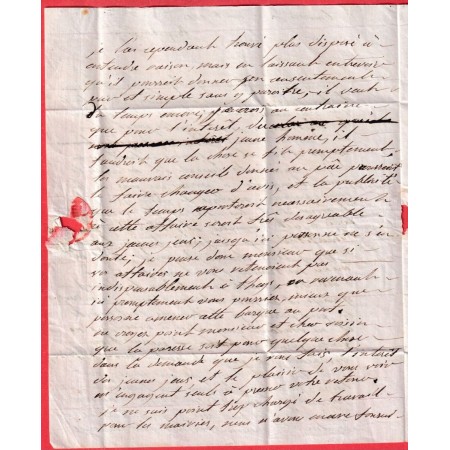 je l'ai cependant trouvé plus disposé à
entendre raison, mais en laissant entrevoir
qu'il pourroit donner son consentement
pur et simple sans y paraître, il veut
du temps encore, j'aurois au contraire
que pour l'intérêt,
jeune homme, il
faudroit que la chose se fit promptement
les mauvais conseils donnés au père pourroient
le faire changer d'avis, et la publicité
que le temps apporteroit nécessairement à
cette affaire seroit très désagréable
aux jeunes gens; jusqu'ici personne ne s'en
doute, je pense donc monsieur que si
vos affaires ne vous retenoient pas
indispensablement à Thays, en revenant
ici promptement vous pourriez, mieux que
personne amener cette barque au port.
ne voyez point monsieur et cher voisin
que la paresse soit pour quelque chose
dans la demande que je vous fais, l'intérêt
des jeunes gens et le plaisir de vous voir
m'engagent seuls à presser votre retour.
je ne suis point trop chargé de travail
pour les mairies, nous n'avons encore